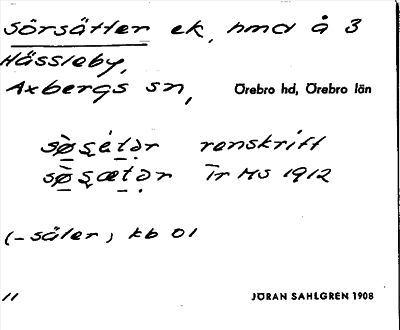 Sörsätter ek, hmd å 3
Hässleby,
Axbergs sn, Örebro hd, Örebro län
sø̀ṣétər renskrift
sø̀ṣætər Tr MS 1912
(-säler) kb 01
11 JÖRAN SAHLGREN 1908